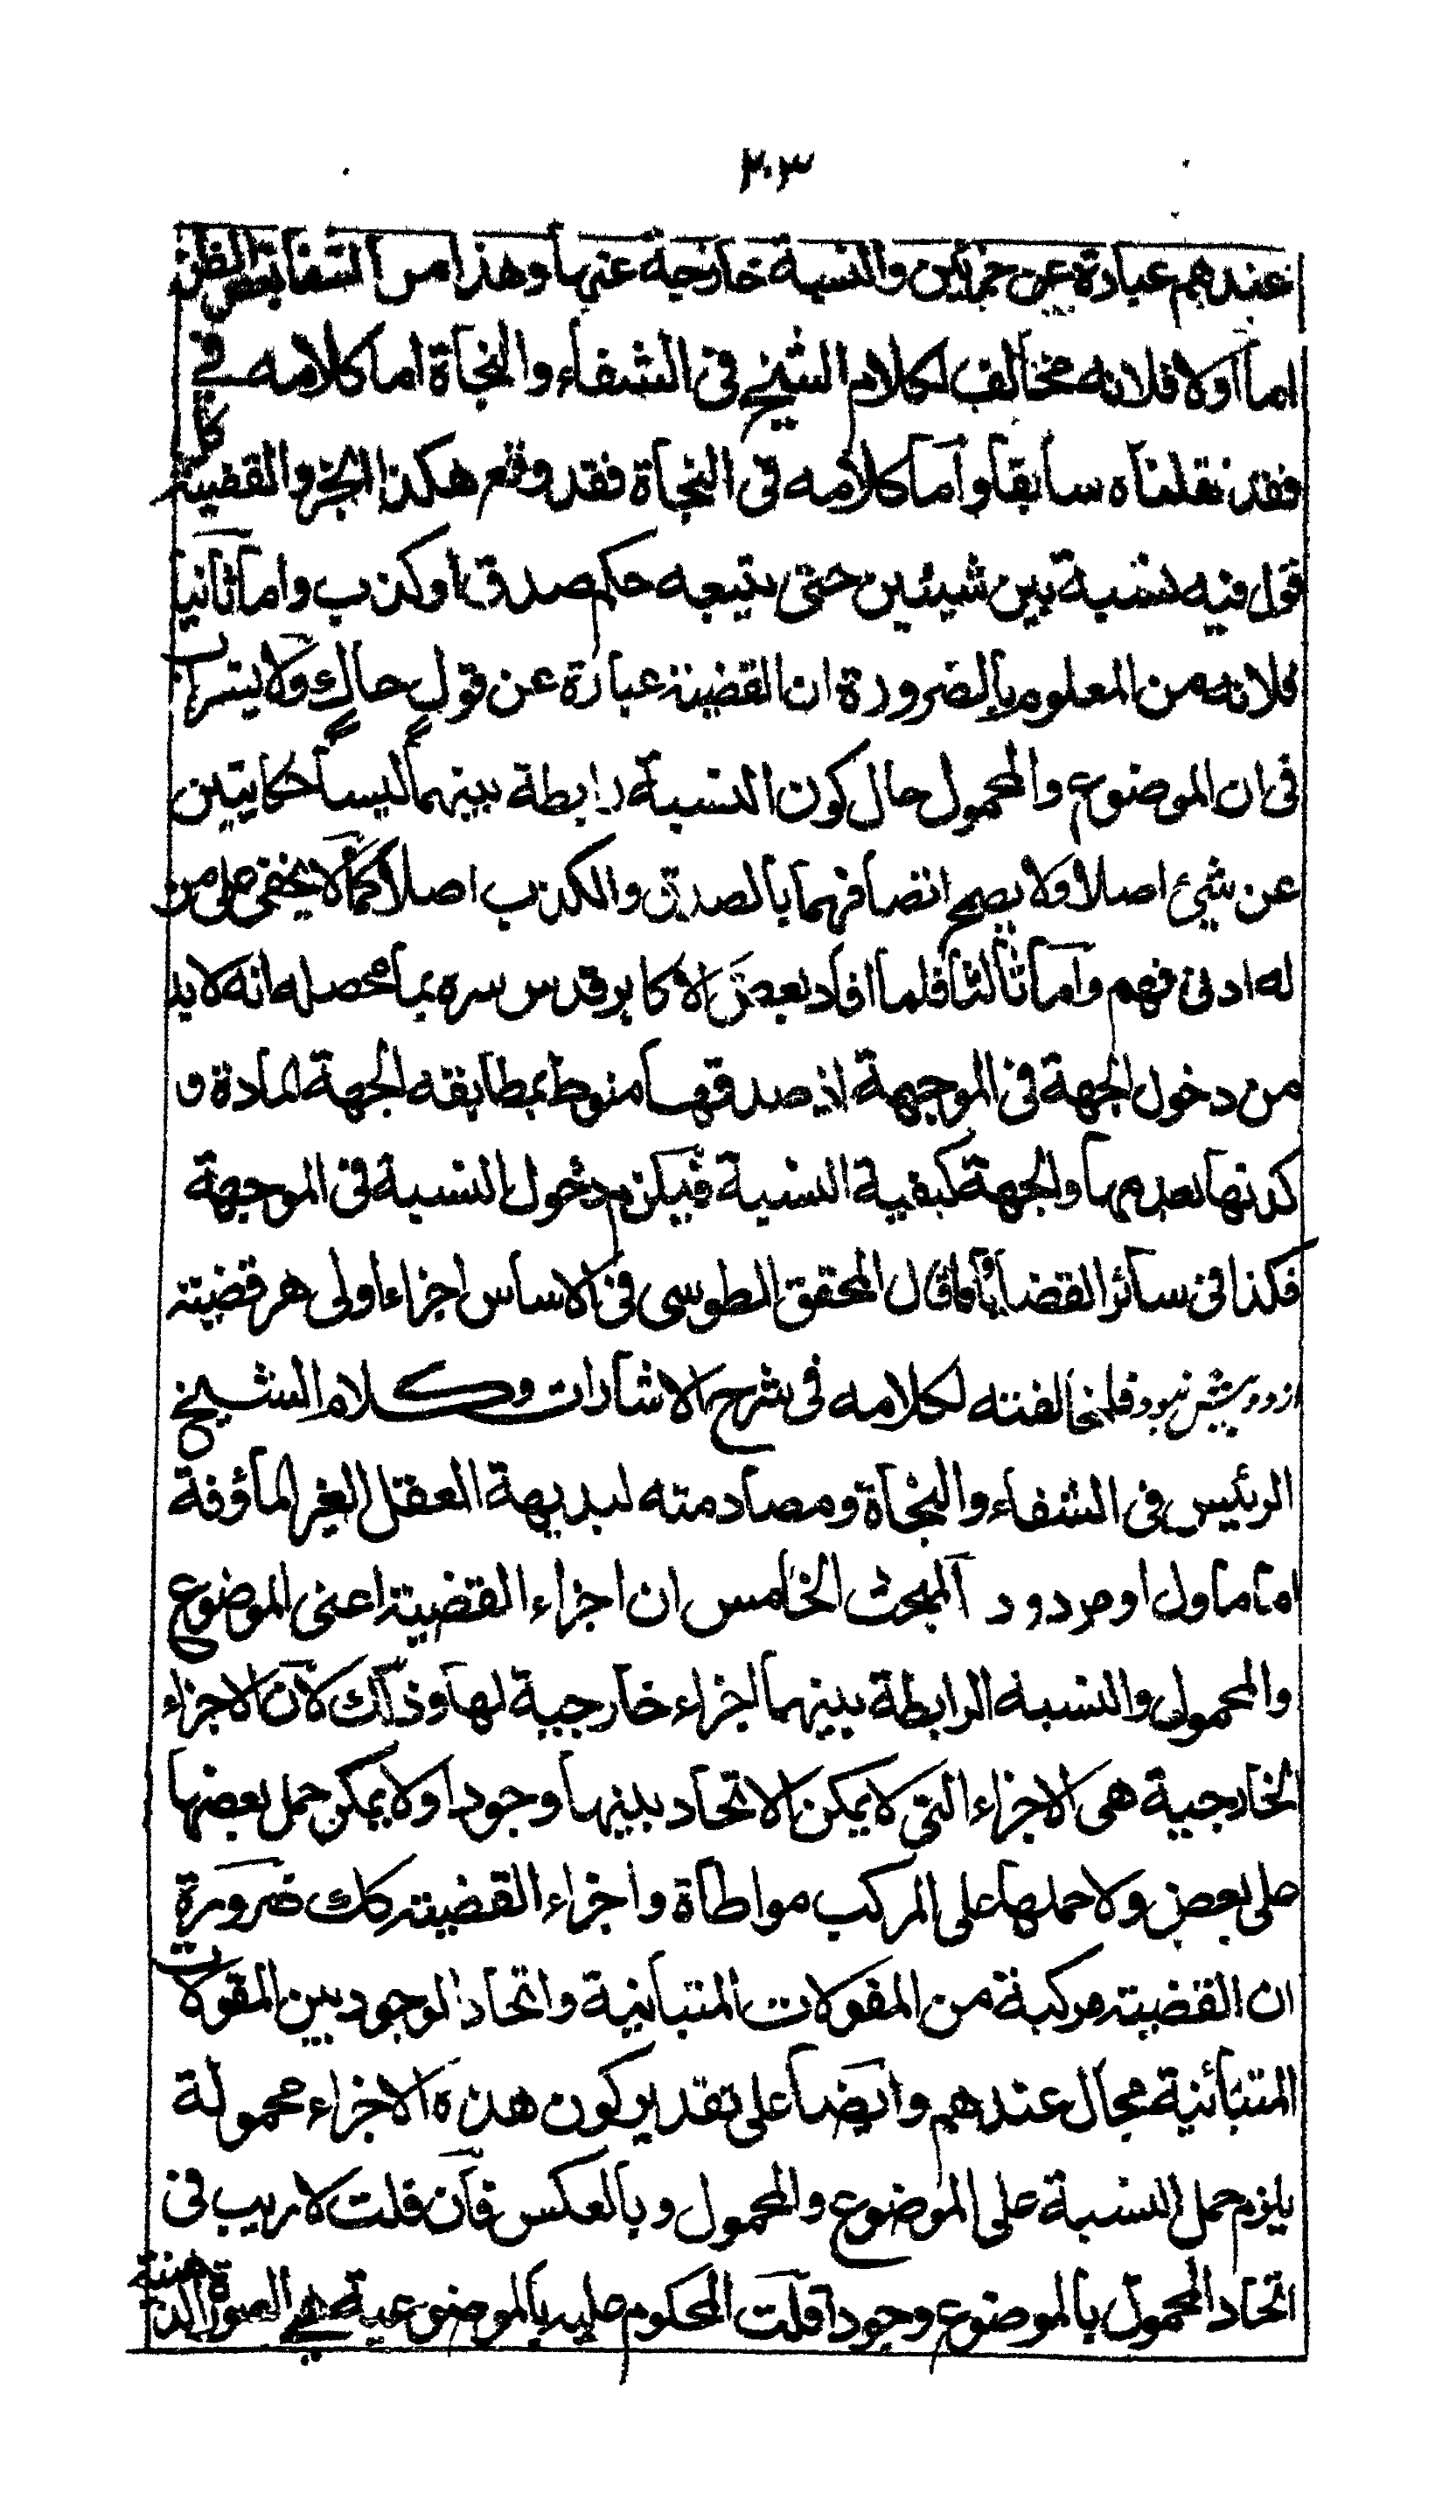 ٢٠٣
عندهم عبارة عن جزأين والنسبة خارجة عنها وهذا من بعض الظن
اما اولا فلانه مخالف لكلام الشيخ فى الشفاء والنجاة اما كلامه فے
فقد نقلناه سابقا واما كلامه فى النجاة فقد وقع هكذا الخبر والقضية كل
قول فيه نسبة بين شيئين حتى يتبعه حكم صدق او كذب واما ثانيا
فلانه من المعلوم بالضرورة ان القضية عبارة عن قول حاك ولا يرتاب
فى ان الموضوع والمحمول حال كون النسبة رابطة بينهما ليسا حكايتين
عن شيئ اصلا ولا يصح اتصافهما بالصدق والكذب اصلا كما لا يخفى على من
له ادنى فهم واما ثالثا فلما افاد بعض الاكابر قدس سره بما محصله انه لا بد
من دخول الجهة فى الموجهة اذ صدقها منوط بمطابقه الجهة المادة و
كذبها بعدمها والجهة كيفية النسبة فيكزم دخول النسبة فى الموجهة
فكذا فى سائر القضايا وما قال المحقق الطوسى فى الاساس اجزاء اولى هر قضيته
از دو بيش نبود فلمخالفته لكلامه فى شرح الاشارات وكلام الشيخ
الرئيس فى الشفاء والنجاة ومصادمته لبديهة العقل الغير المأوفة
اما ماول او مردود المبحث الخامس ان اجزاء القضية اعنى الموضوع
والمحمول والنسبة الرابطة بينهما اجزاء خارجية لها وذلك لان الاجزاء
الخارجية هى الاجزاء التى لا يمكن الاتحاد بينها وجودا ولا يمكن حمل بعضها
على بعض ولا حملها على المركب مواطاة واجزاء القضيته كك ضرورة
ان القضيته مركبة من المقولات المتبائنية واتحاد الوجود بين المقولات
المتبائنية محال عندهم وايضا على تقدير كون هذه الاجزاء محمولة
يلزم حمل النسبة على الموضوع والمحمول وبالعكس فان قلت لا ريب فى
اتحاد المحمول بالموضوع وجودا قلت المحكوم عليه بالموضوعية فے الصورة الذهنية